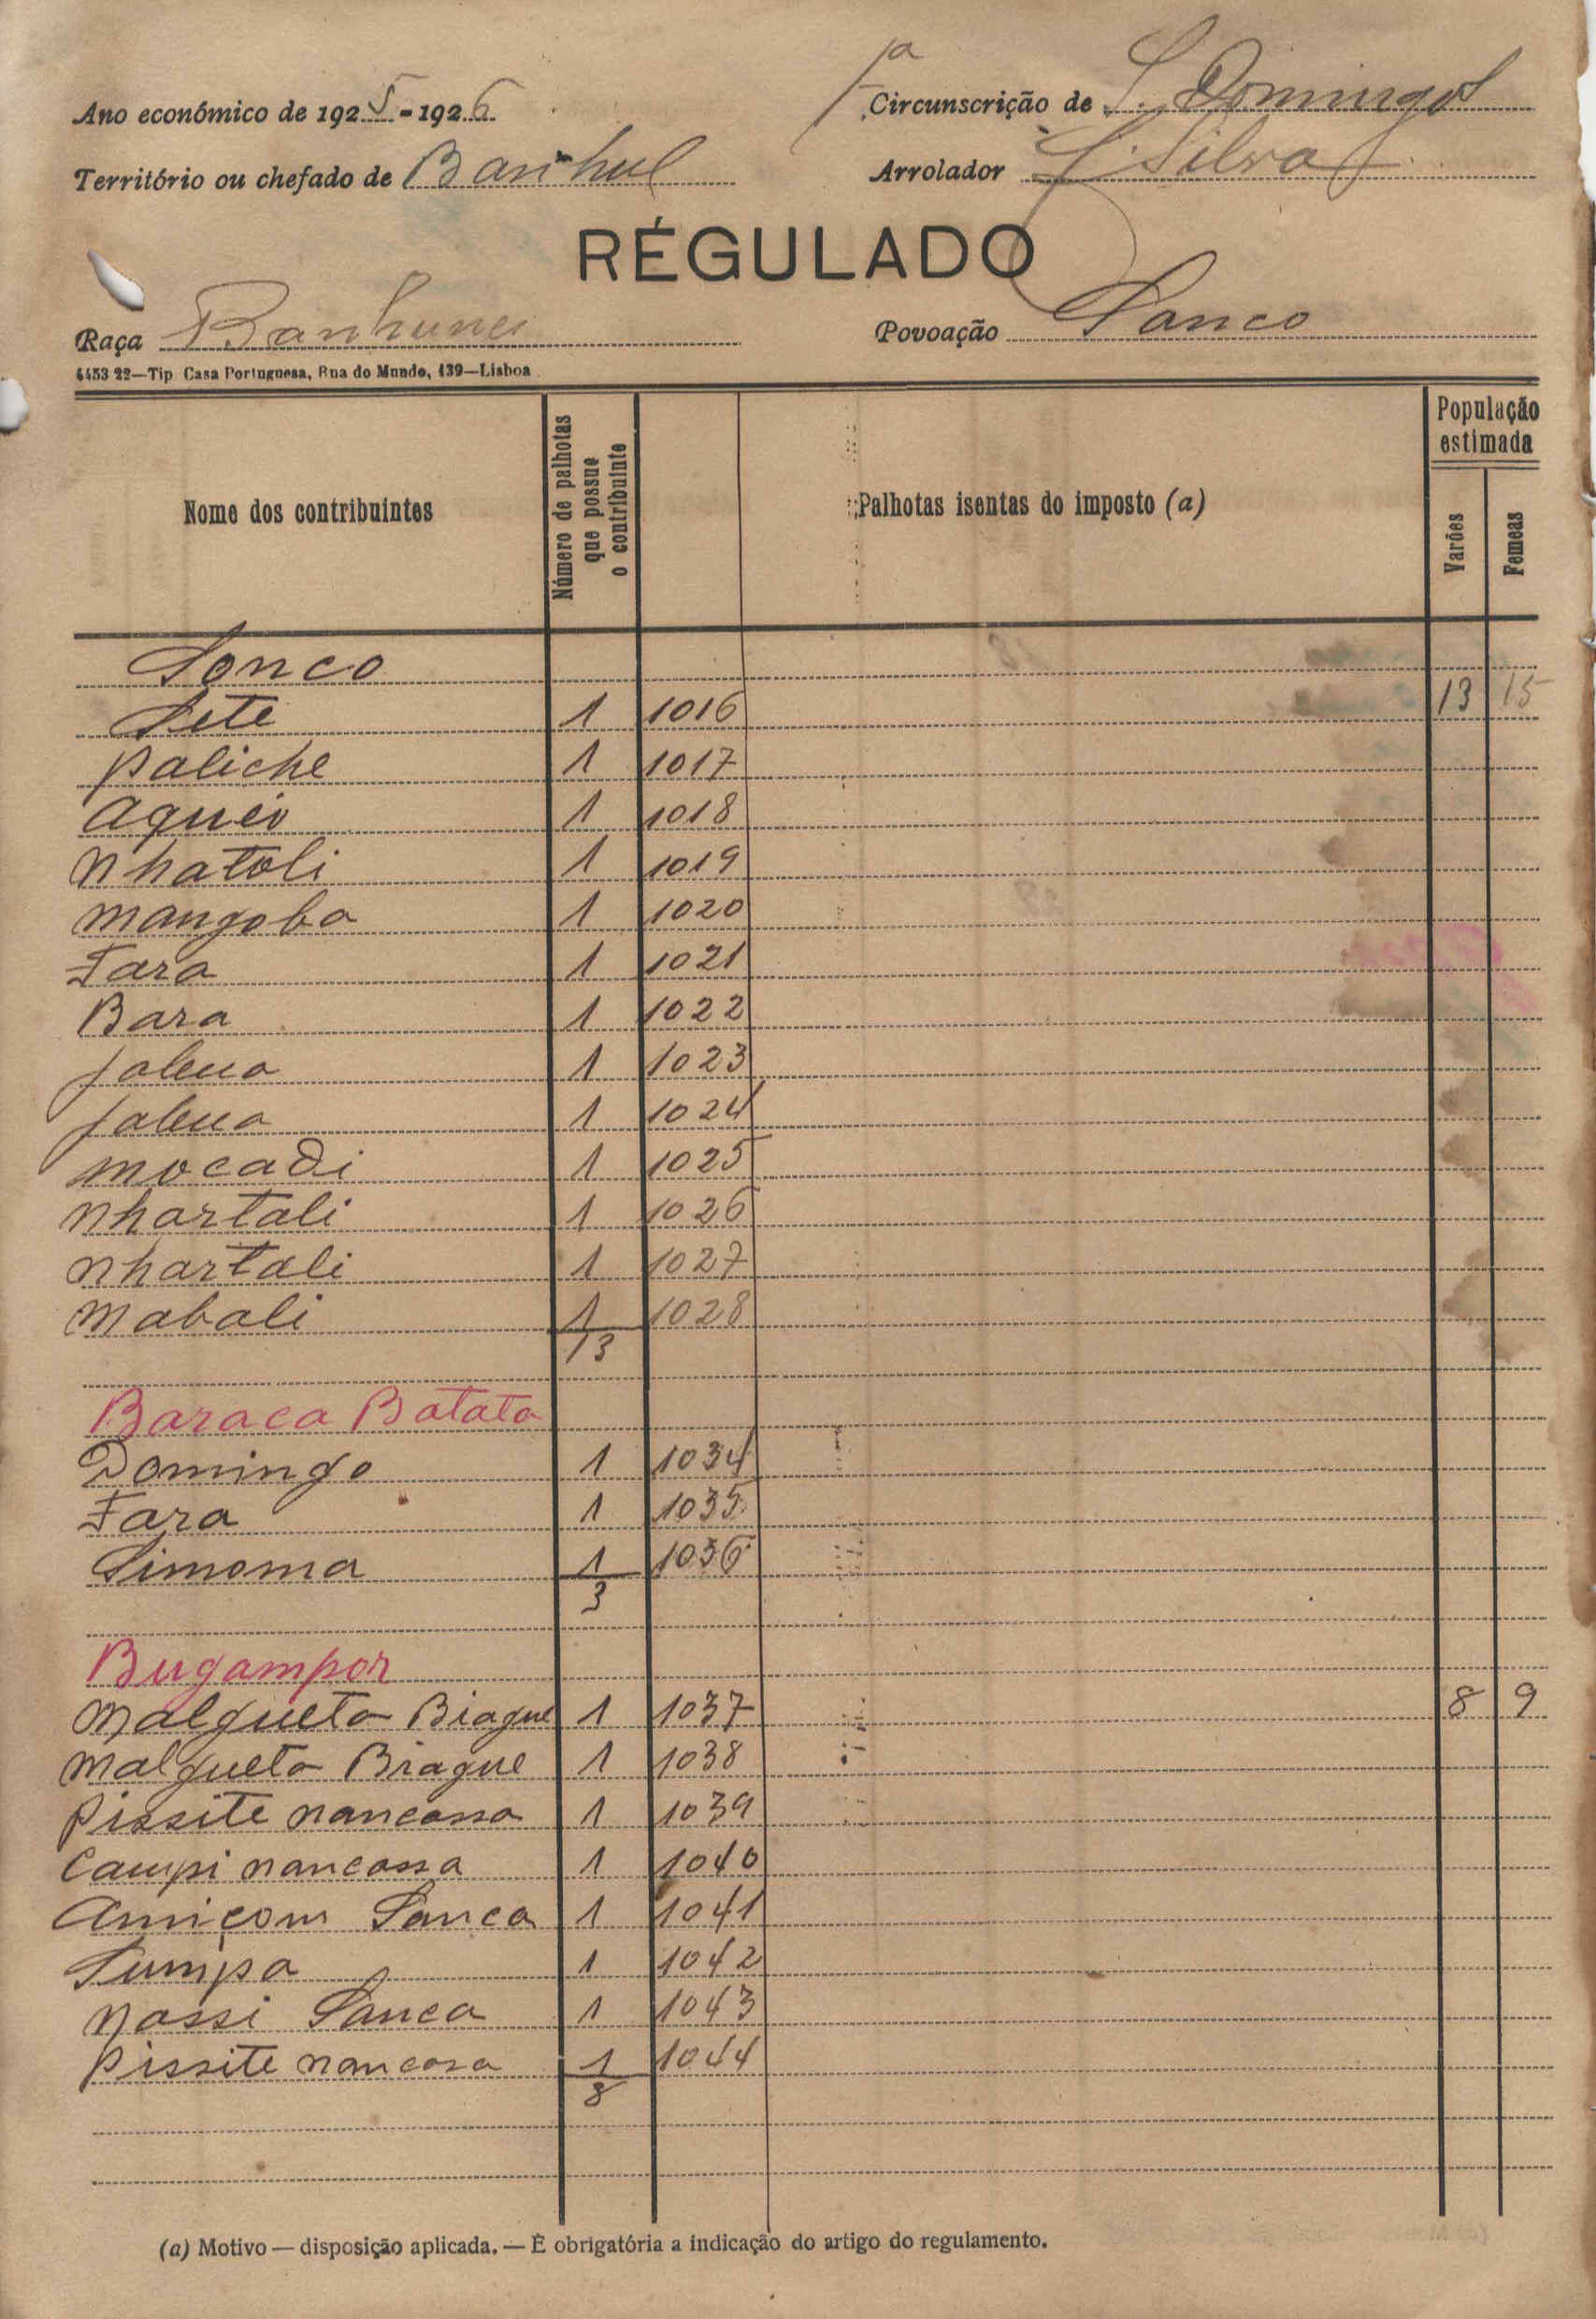 1ª Circunscrição de S. Domingos
Ano económico de 1925-1926
Território ou chefado de Banhul
Arrolador S. Silva
RÉGULADO
Raça Banhunes
Povoação Sonco
4453 22—Tip Casa Portuguesa, Rua do Mundo, 139—Lisboa
Nome dos contribuintes
Número de palhotas que possue o contribuinte
Palhotas isentas do imposto (a)
População estimada
Varões
Femeas
Sonco
Sete 1 1016 13 15
Paliche 1 1017
Aqueio 1 1018
Nhatoli 1 1019
Mangoba 1 1020
Fara 1 1021
Bara 1 1022
1 1023
1 1024
Mocadi 1 1025
Nhartali 1 1026
Nhartali 1 1027
Mabali 1 1028
13
Baraca Batata
Domingo 1 1034
Fara 1 1035
Simoma 1 1036
3
Bugampor
Malgueta Biague 1 1037 8 9
Malgueta Biague 1 1038
Pissite Nancassa 1 1039
Campi Nancassa 1 1040
Amiçom Sanca 1 1041
Sumpa 1 1042
Nassi Sanca 1 1043
Pissite Nancasa 1 1044
8
(a) Motivo — disposição aplicada. — É obrigatória a indicação do artigo do regulamento.